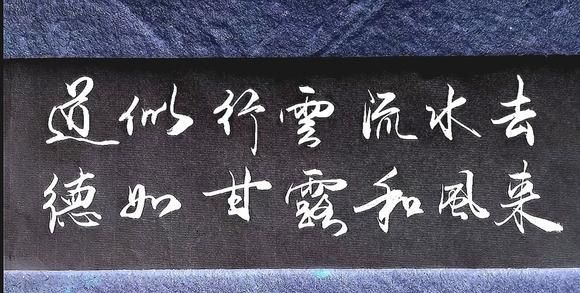 道似行雲流水去
德如甘露和風来